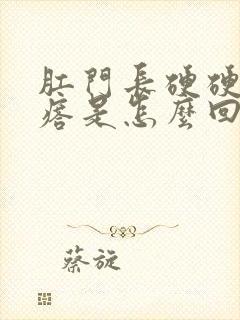 肛門長硬硬
痞是怎麼回
蔡旋